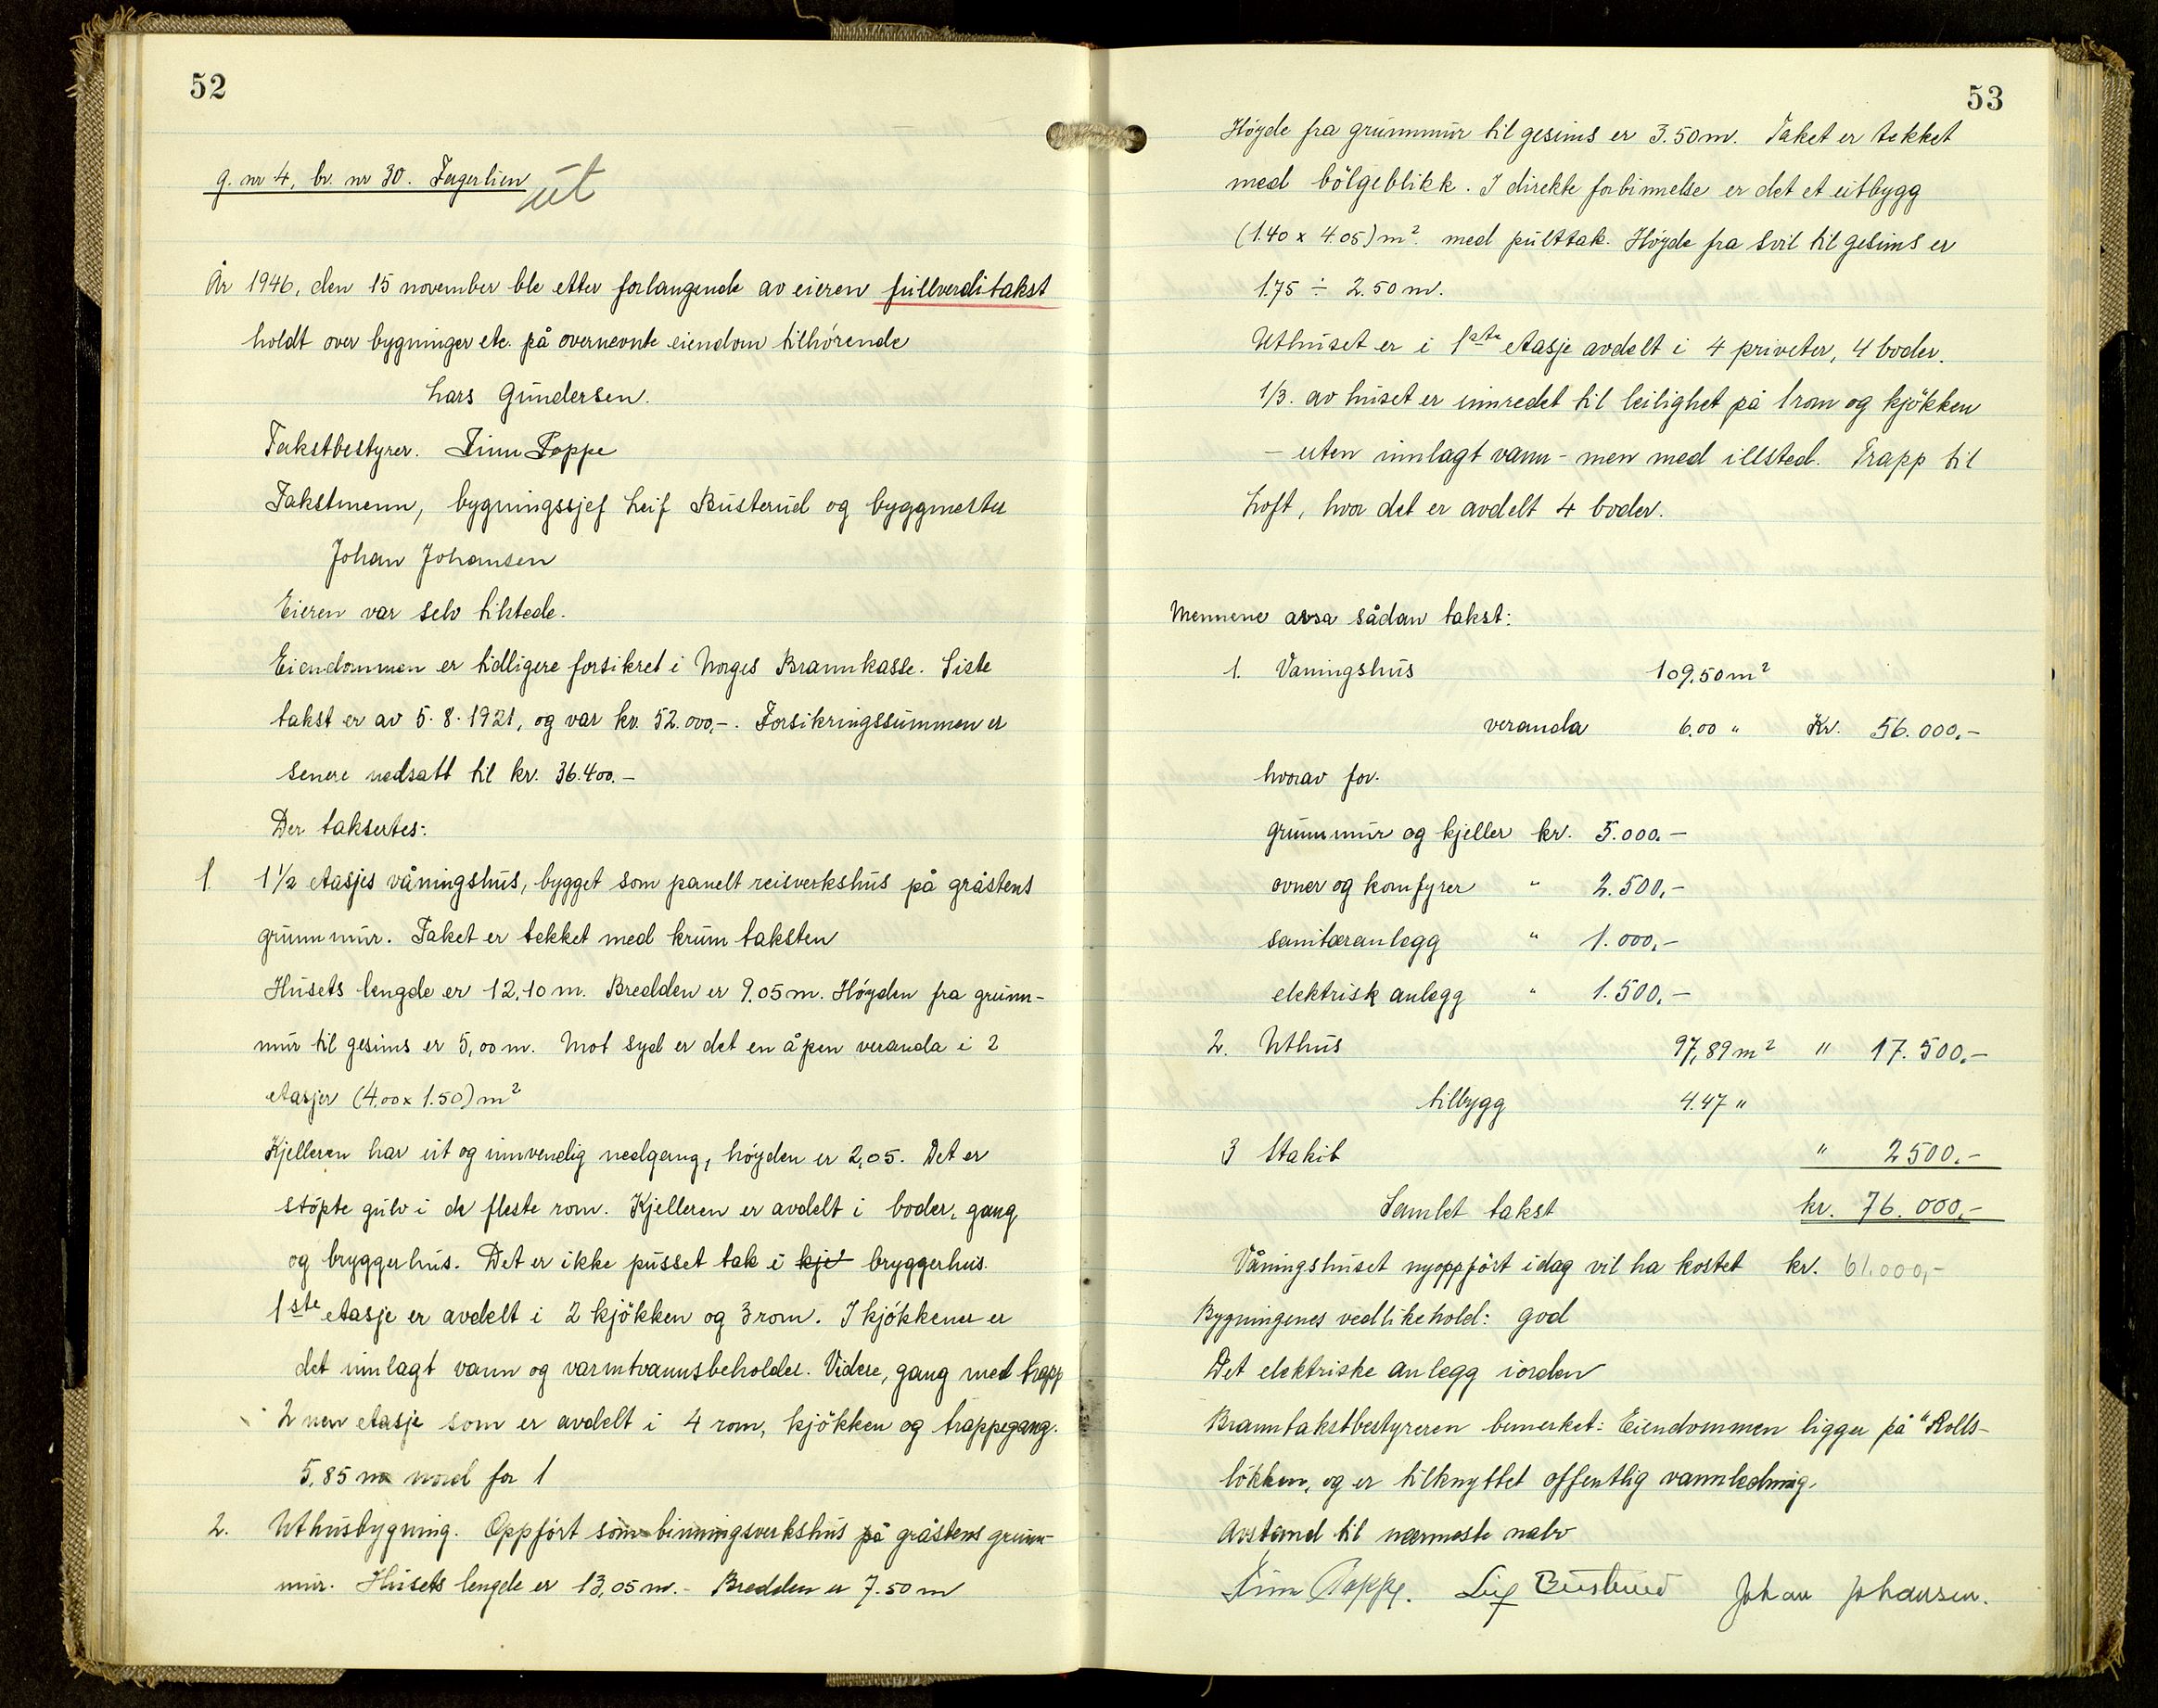 52
g. nr 4, br. nr 30. Fagerlien
ut
År 1946, den 15 november ble etter forlangende av eieren fullverditakst
holdt over bygninger etc. på overnevnte eiendom tilhörende
Lars Gundersen.
Takstbestyrer. Finn Poppe
Takstmenn, bygningssjef Leif Busterud og byggmester
Johan Johansen
Eieren var selv tilstede.
Eiendommen er tidligere forsikret i Norges Brannkasse. Siste
takst er av 5.8.1921, og var kr. 52.000,-. Forsikringssummen er
senere nedsatt til kr. 36.400.-
Der taksertes:
1. 1 1/2 etasjes våningshus, bygget som panelt reisverkshus på gråstens
grunnmur. Taket er tekket med krum taksten
Husets lengde er 12,10 m. Bredden er 9.05 m. Höyden fra grunn-
mur til gesims er 5,00 m. Mot syd er det en åpen veranda i 2
etasjer (4.00 x 1.50) m²
Kjelleren har ut og innvendig nedgang, höyden er 2,05. Det er
stöpte gulv i de fleste rom. Kjelleren er avdelt i boder, gang
og bryggerhus. Det er ikke pusset tak i kje bryggerhus.
1ste etasje er avdelt i 2 kjökken og 3 rom. I kjökkener er
det innlagt vann og varmtvannsbeholder. Videre, gang med trapp
2 nen etasje som er avdelt i 4 rom, kjökken og trappegang.
5,85 m nord for 1
2. Uthusbygning. Oppfört som binningsverkshus på gråstens grunn-
mur. Husets lengde er 13,05 m. - Bredden er 7.50 m
53
Höyde fra grunnmur til gesims er 3.50 m. Taket er tekket
med bölgeblikk. I direkte forbinnelse er det et utbygg
(1.40 x 4.05) m². med pulttak. Höyde fra svil til gesims er
1.75 ÷ 2.50 m.
Uthuset er i 1ste etasje avdelt i 4 priveter, 4 boder.
1/3. av huset er innredet til leilighet på 1 rom og kjökken
- uten innlagt vann - men med illsted. Trapp til
loft, hvor det er avdelt 4 boder.
Mennene avsa sådan takst:
1. Vaningshus 109,50 m²
veranda 6.00 " Kr. 56.000.-
hvorav for.
grunnmur og kjeller kr. 5.000.-
ovner og komfyrer " 2.500,-
sanitæranlegg " 1.000,-
elektrisk anlegg " 1.500,-
2. Uthus 97,89 m² " 17.500.-
tilbygg 4.47 "
3 Stakit " 2500.-
Samlet takst kr. 76.000,-
Våningshuset nyoppfört idag vil ha kostet kr. 61.000,-
Bygningenes vedlikehold: god
Det elektriske anlegg iorden
Branntakstbestyreren bemerket: Eiendommen ligger på "Rolls-
lökken, og er tilknyttet offentlig vannledning.
Avstand til nærmeste nabo
Finn Poppe. Leif Busterud Johan Johansen.